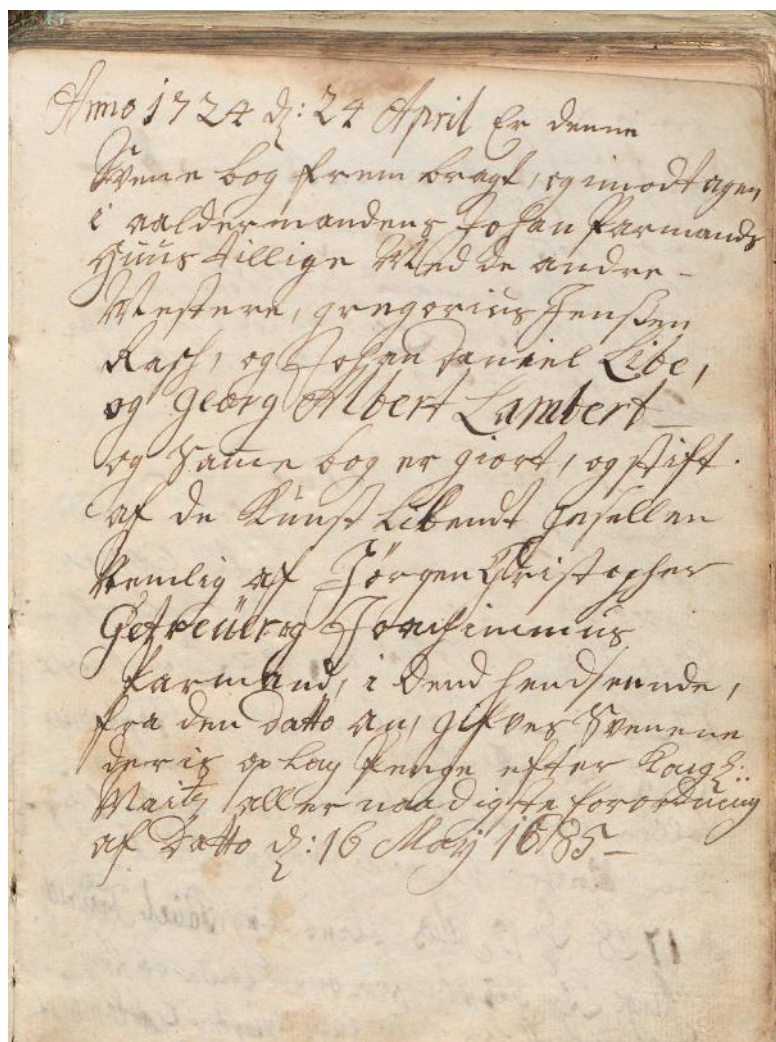 Anno 1724 d: 24 April Er denne
Svene bog frem bragt, og imodtagen
i aaldermandens Johan Farmands
Huus tillige Med de andre -
Mestere, gregorius Jenssen
Rasch, og Johan Daniel Libe,
og Georg Albert Lambert -
og Samme bog er giort, og stift.
af de Kunst Libendt Gesellen
Nemlig af Jørgen Christopher
Getreüer og Joachimmus
Farmand, i Dend hendseende,
fra den datto an, gifves Svenene
deris oplag penge efter Kongl:
Maitz aller naadigste forordning
af Datto d: 16 Maij 1685 -